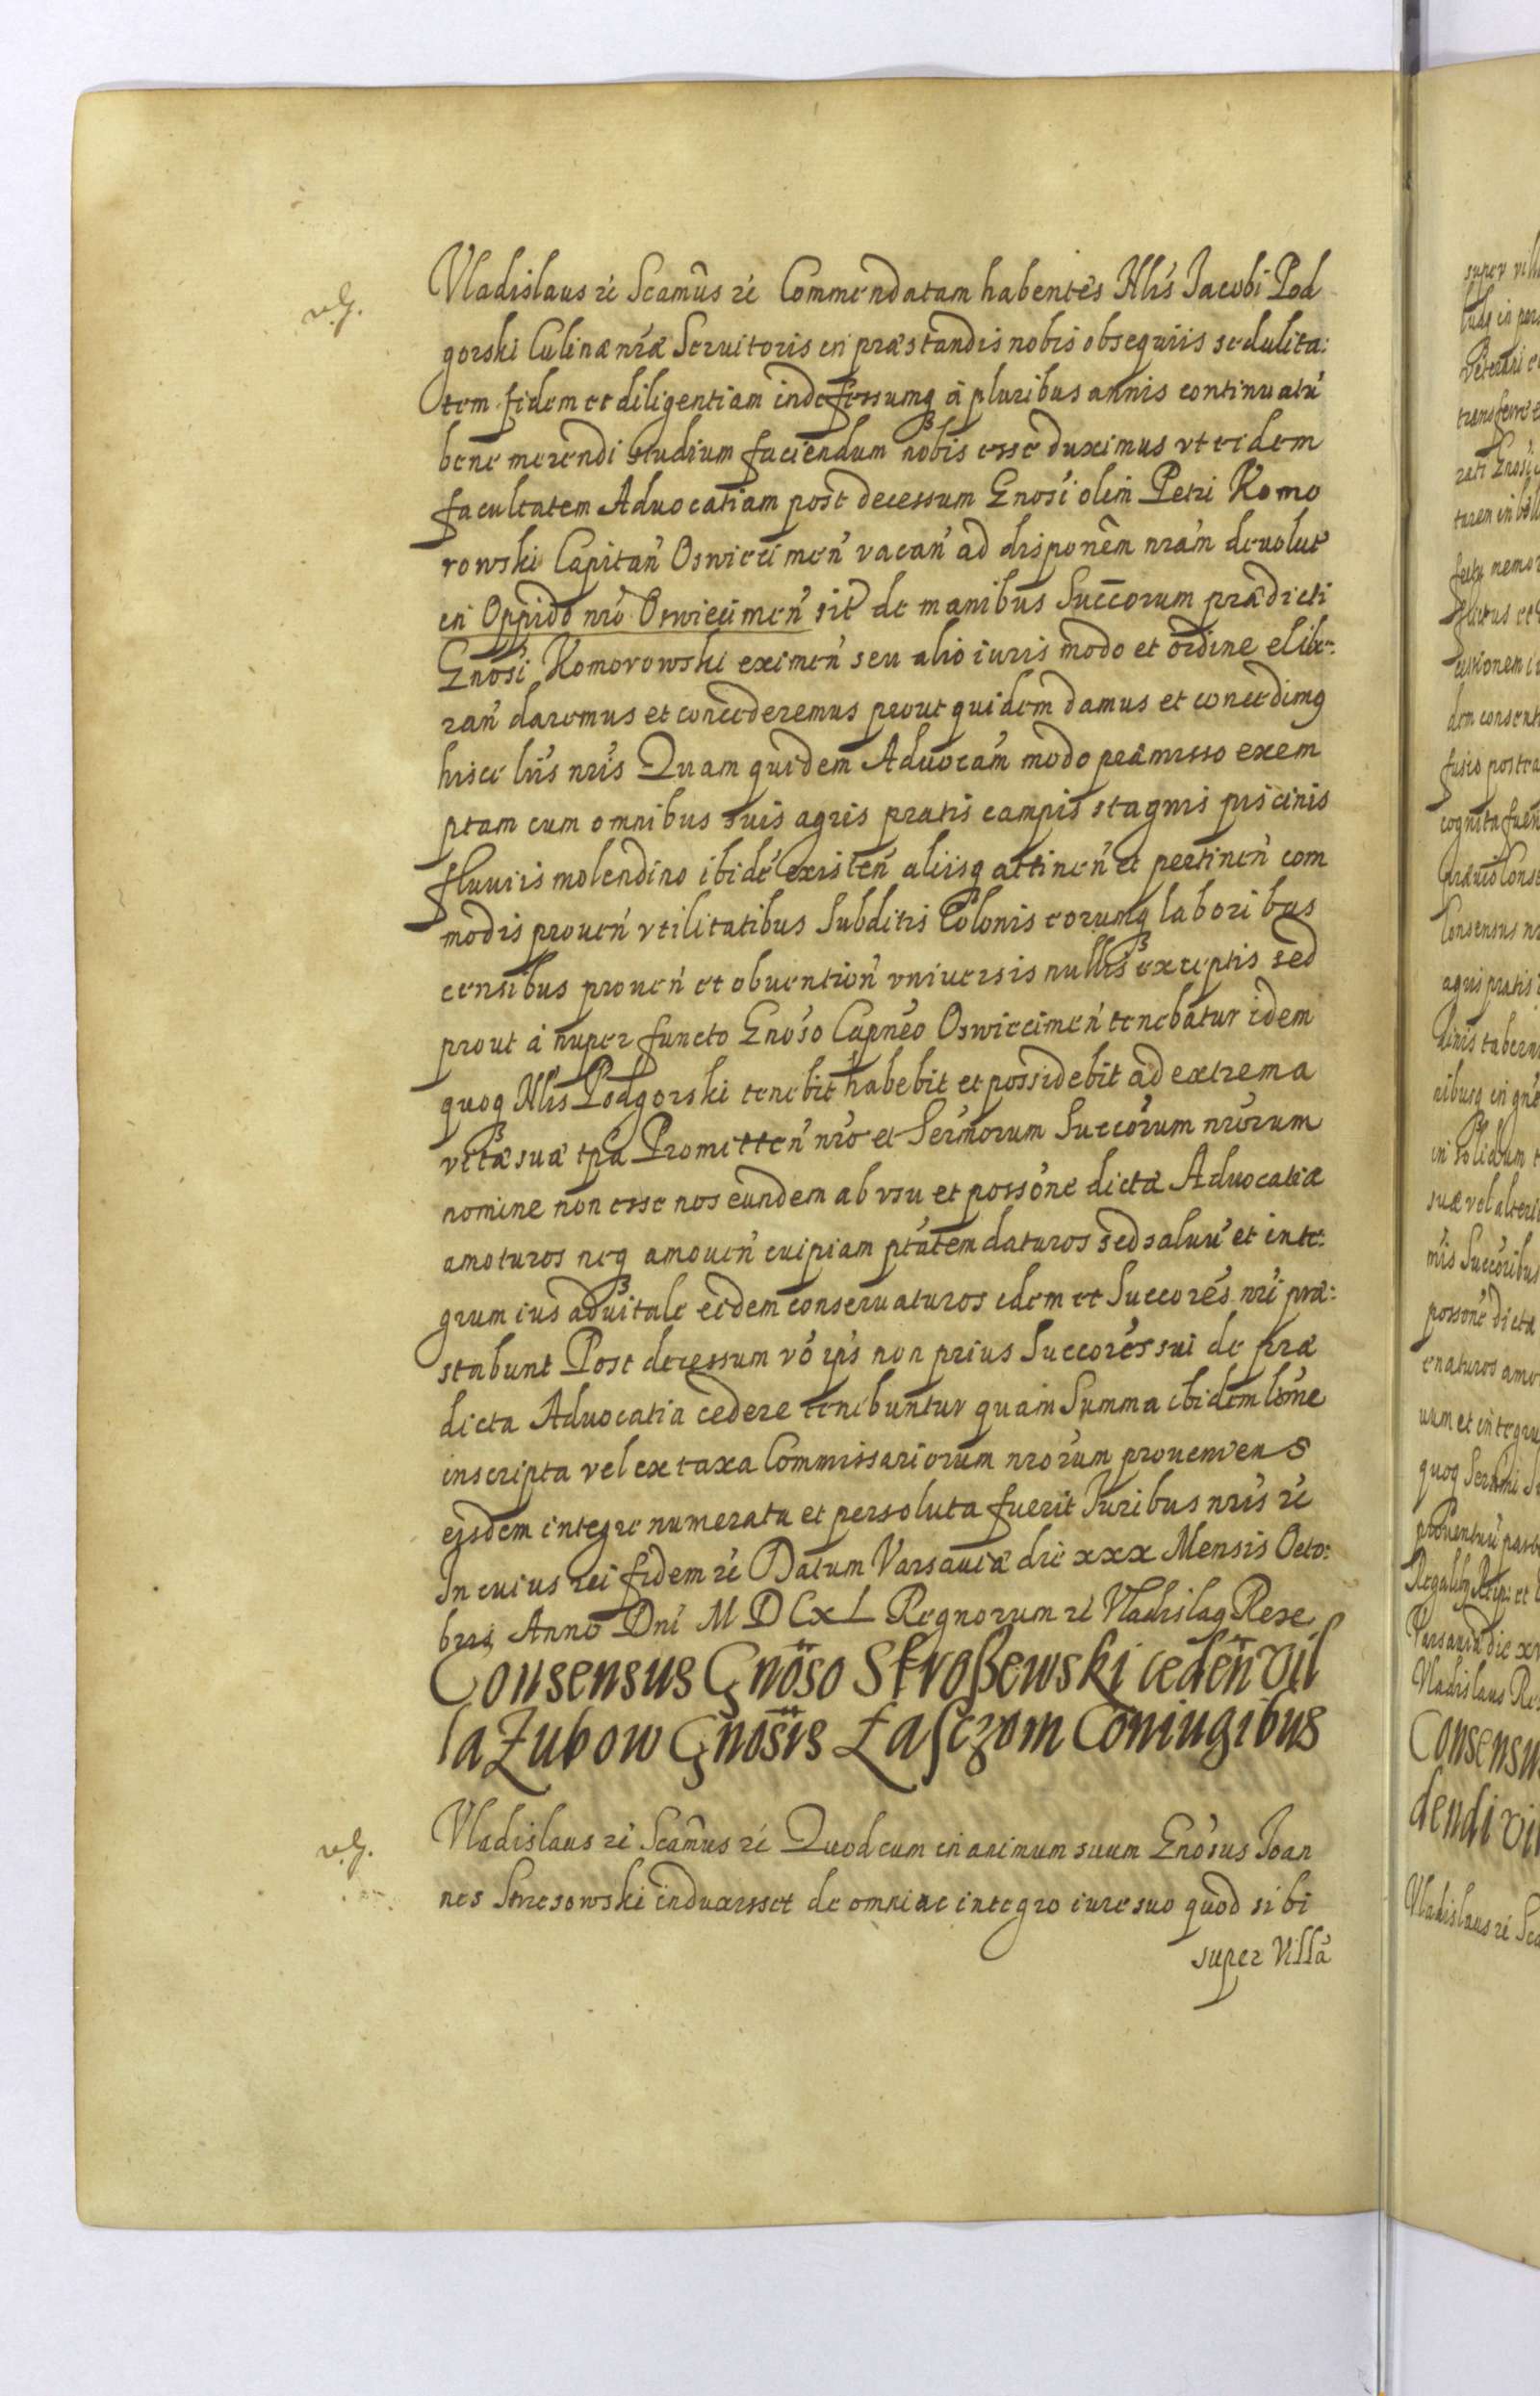 Vladislaus rć Scamũs rć Commendatam habentes Nlis Jacobi Pod
gorski Culinæ nrӕ Seruitoris in præstandis nobis obsequiis sedulita:
tem fidem et diligentiam indefessumq à pluribus annis continuatũ
bene merendi studium faciendum nobis esse duximus vt eidem
facultatem Aduocatiam post decessum Gnosi olim Petri Komo
rowski Capitan̄ Oswiecimen̄ vacan̄ ad disponẽm nram deuolut
in Oppido nrõ Oswiecimen̄ sit de manibus Succorum prædicti
Gnosi Komorowski eximen̄ seu alio iuris modo et ordine elibe:
ran̄ daremus et concederemus prout quidem damus et concedimq
hisce lris nris Quam quidem Aduocam̃ modo præmisso exem
ptam cum omnibus suis agris pratis campis stagnis piscinis
fluuiis molendino ibidē existen̄ aliisq attinen̄ et pertinen̄ com
modis prouen̄ vtilitatibus Subditis Colonis eorumq laboribus
censibus prouen̄ et obuention̄ vniuersis nullis exceptis sed
prout à nuper functo Gnoso Capnēo Oswiecimen̄ tenebatur idem
quoq Nlis Podgorski tenebit habebit et possidebit ad extrema
vitæ suæ tpa Promitten̄ nro et Sermorum Succorum nrorum
nomine non esse nos eundem ab vsu et possone dictæ Aduocatiæ
amoturos neq amouen̄ cuipiam ptatem daturos sed saluũ et inte:
grum ius aduitale eidem conseruaturos idem et Succores nri præ:
stabunt Post decessum vō ips non prius Succores sui de præ
dicta Aduocatia cedere tenebuntur quam Summa ibidem lone
inscripta vel ex taxa Commissariorum nrorum proueniens
eisdem integre numerata et persoluta fuerit Juribus nris rć
In cuius rei fidem rć Datum Varsauiæ die xxx Mensis Octo:
bris Anno Dni M D C x L Regnorum rć Vladislaq Rex
Consensus Gnoso Stroßewski ceden̄ vil
la Zubow Gnosis Łasczom Coniugibus
Vladislaus rć Scamũs rć Quod cum in animum suum Gnosus Joan
nes Strzesowski induxisset de omni ac integro iure suo quod sibi
super Villā